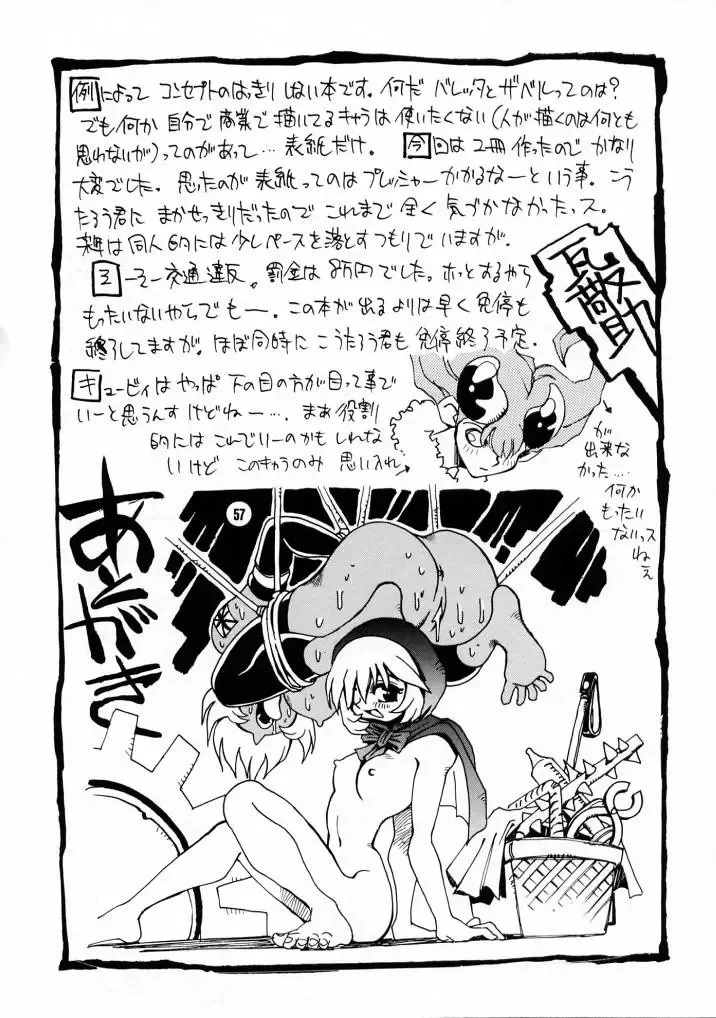 例によって コンセプトのはっきり しない本です。何だ バレッタと ザベルってのは?
でも何か 自分で 商業で 描いてる キャラは 使いたくない (人が 描くのは 何とも
思わないが) ってのがあって… 表紙だけ。 今回は 2冊 作ったので かなり
大変でした。 思ったのが 表紙ってのは プレッシャーかかるなーという事。こう
たろう君に まかせっきりだったので これまで 全く 気づかなかったっス。
来年は 同人的には 少しペースを 落とすつもりで いますが。
そーそー 交通違反。罰金は 8万円でした。ホッとするやら
もったいないやらでもー。この本が 出るよりは 早く 免停も
終了してますが。ほぼ同時に こうたろう君も 免停終了予定。
キュービィは やっぱ 下の目の方が 目って事で
いーと 思うんす けどねー…. まあ 役割
的には これでいーのかも しれな
いけど このキャラのみ 思い入れ
が
出来な
かった….
何か
もったい
ないっス
ねぇ
あとがき
57